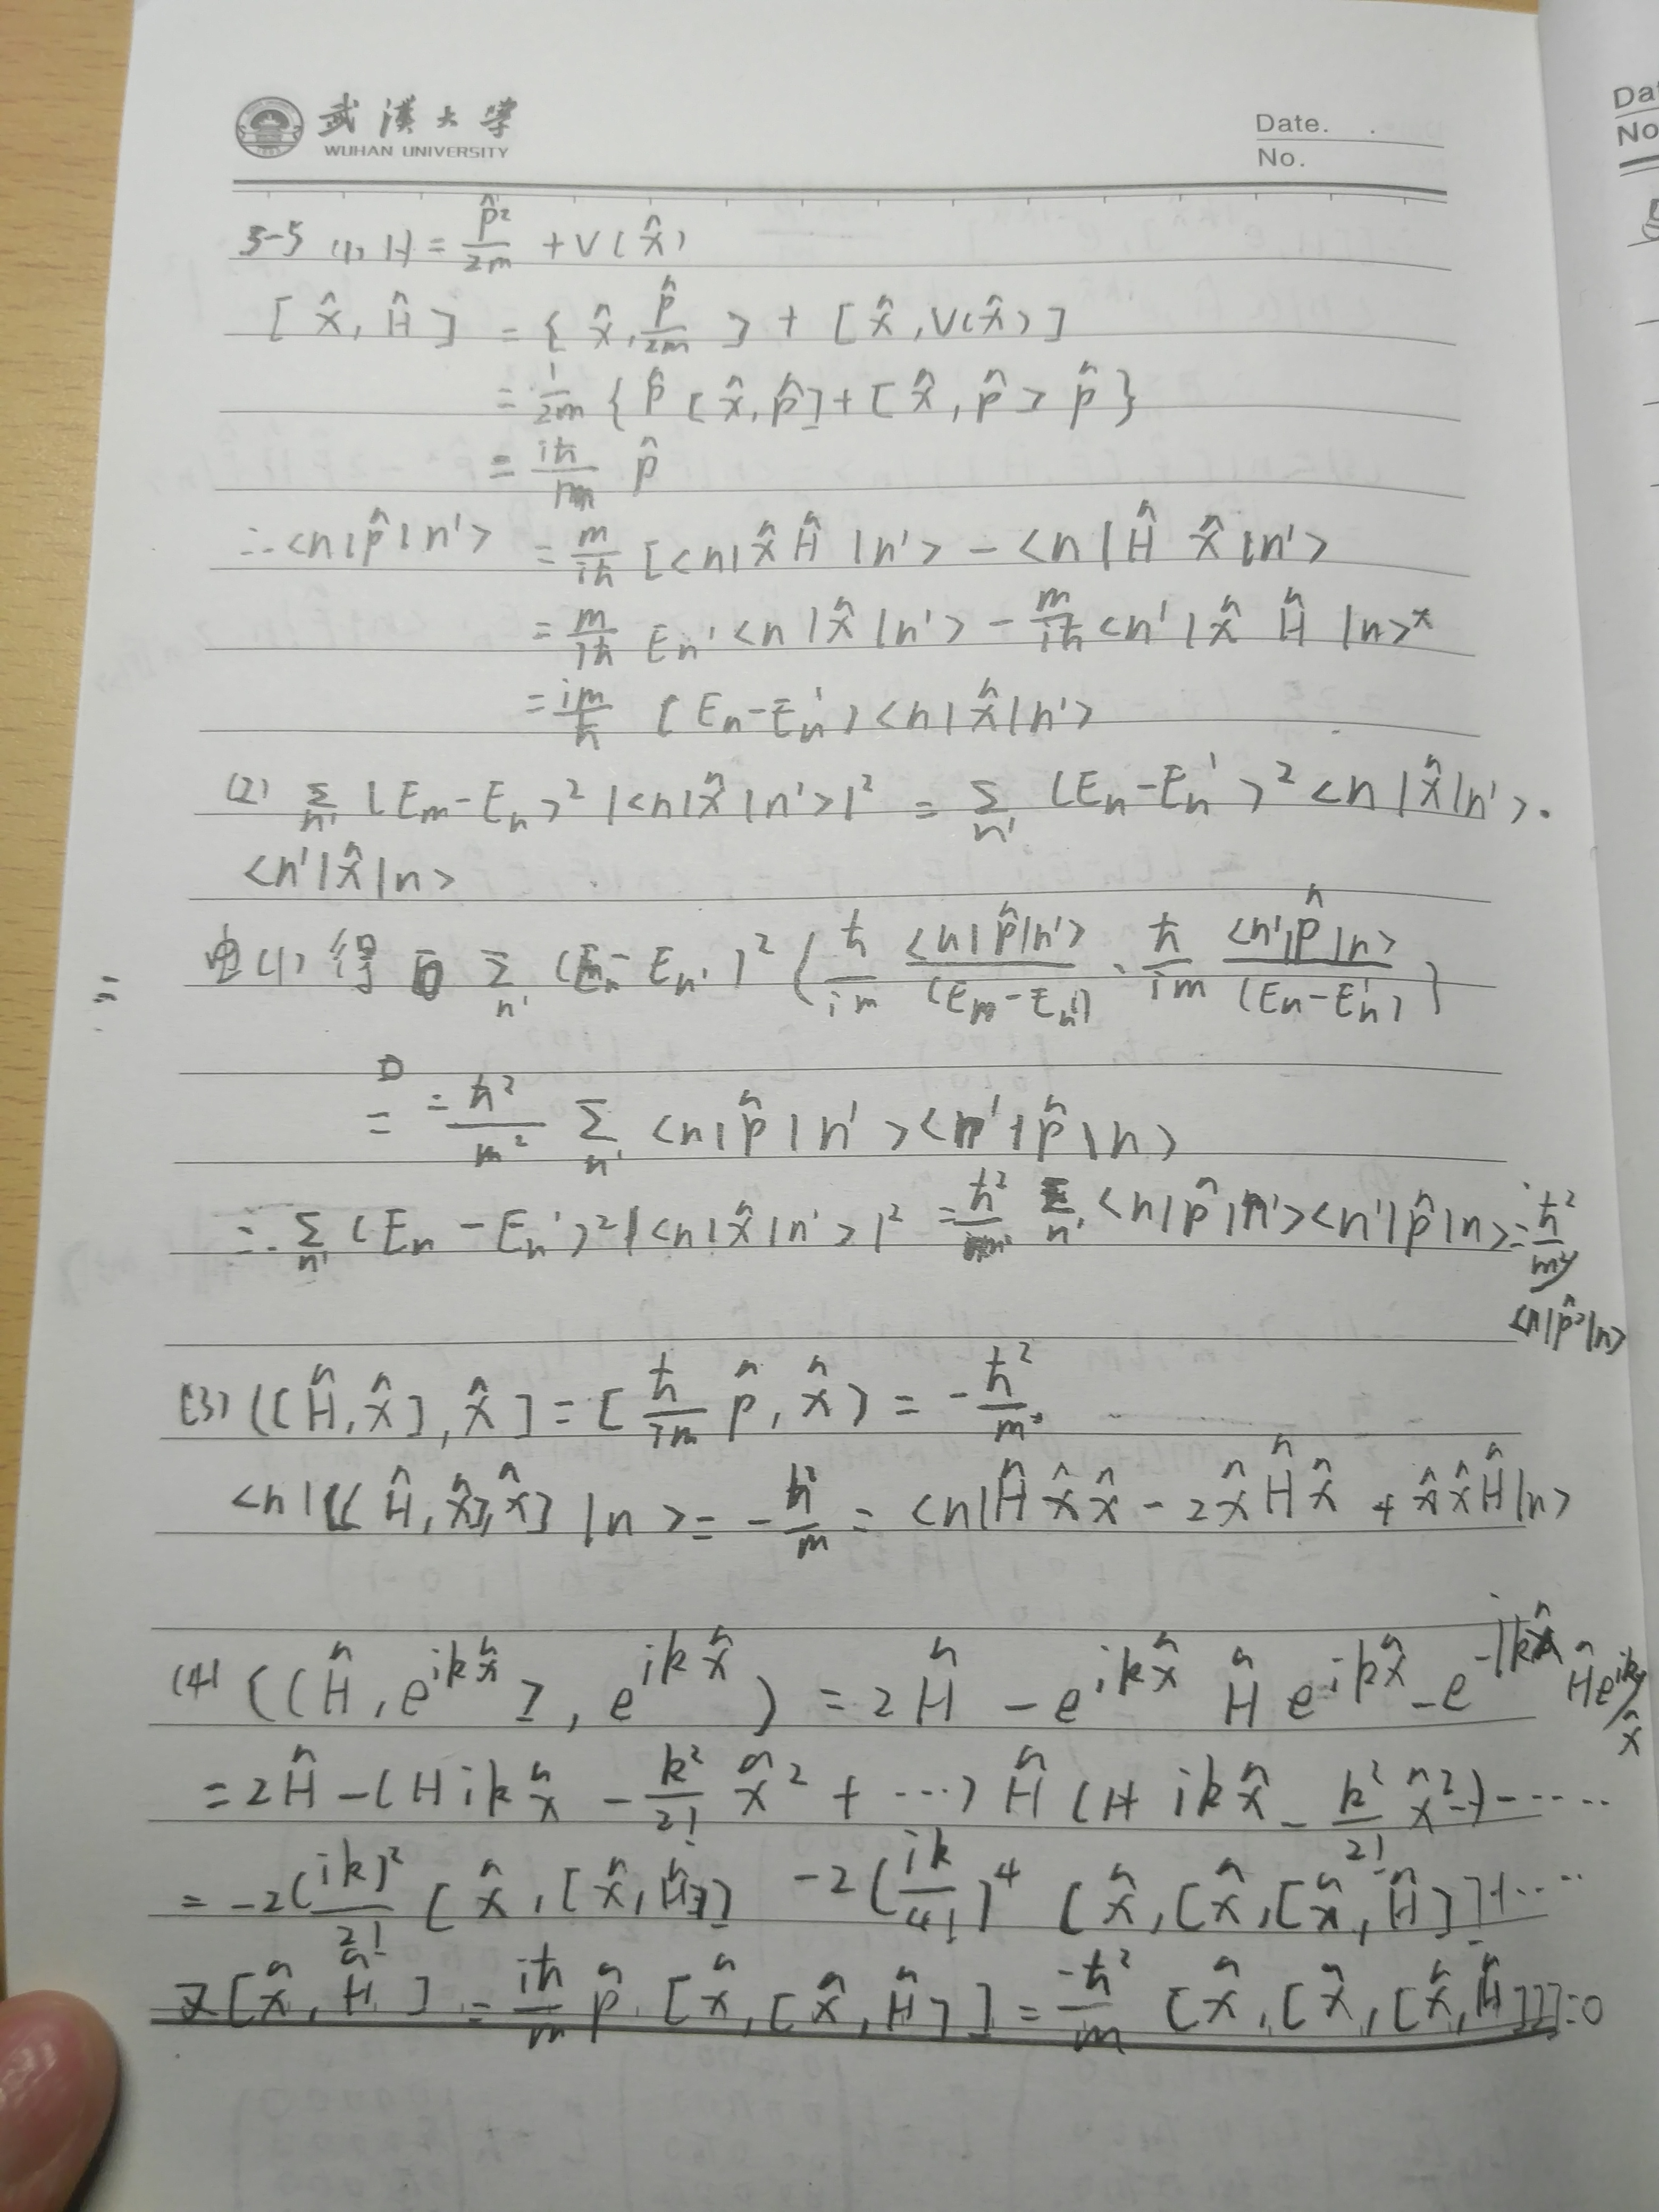 武漢大學
WUHAN UNIVERSITY
Date. .
No.
Da
No
3-5 (1) H = p̂²/2m + V(x̂)
[x̂, Ĥ] = {x̂, p̂/2m] + [x̂, V(x̂)]
= 1/2m {p̂[x̂, p̂] + [x̂, p̂]p̂}
= iħ/m p̂
∴<n|p̂|n'> = m/iħ [<n|x̂Ĥ|n'> - <n|Ĥ x̂|n'>
= m/iħ En'<n|x̂|n'> - m/iħ <n'|x̂ Ĥ|n>*
= im/ħ (En-En')<n|x̂|n'>
(2) Σn' (Em-En)²|<n|x̂|n'>|² = Σn' (En-En')²<n|x̂|n'>·
<n'|x̂|n>
= 由(1)得 Σn' (En-En')² (ħ/im <n|p̂|n'>/(Em-En') · ħ/im <n'|p̂|n>/(En-En'))
= -ħ²/m² Σn' <n|p̂|n'><n'|p̂|n>
∴ Σn' (En-En')²|<n|x̂|n'>|² = ħ²/m² Σn' <n|p̂|n'><n'|p̂|n> = ħ²/m²
<n|p̂²|n>
(3) ([Ĥ, x̂], x̂] = [ħ/im p̂, x̂) = -ħ²/m
<n|[[Ĥ, x̂], x̂]|n> = -ħ²/m = <n|Ĥx̂x̂ - 2x̂Ĥx̂ + x̂x̂Ĥ|n>
(4) ((Ĥ, e^ikx̂], e^ikx̂) = 2Ĥ - e^ikx̂ Ĥ e^-ikx̂ - e^-ikx̂ Ĥe^ikx̂
= 2Ĥ - (1+ikx̂ - k²/2! x̂² + ···) Ĥ (1+ikx̂ - k²/2! x̂²-)-·····
= -2(ik)²/2! [x̂, [x̂, Ĥ]] -2(ik/4!)⁴ [x̂, [x̂, [x̂, Ĥ]]]+····
又[x̂, Ĥ] = iħ/m p̂ [x̂, [x̂, Ĥ]] = -ħ²/m [x̂, [x̂, [x̂, Ĥ]]]=0